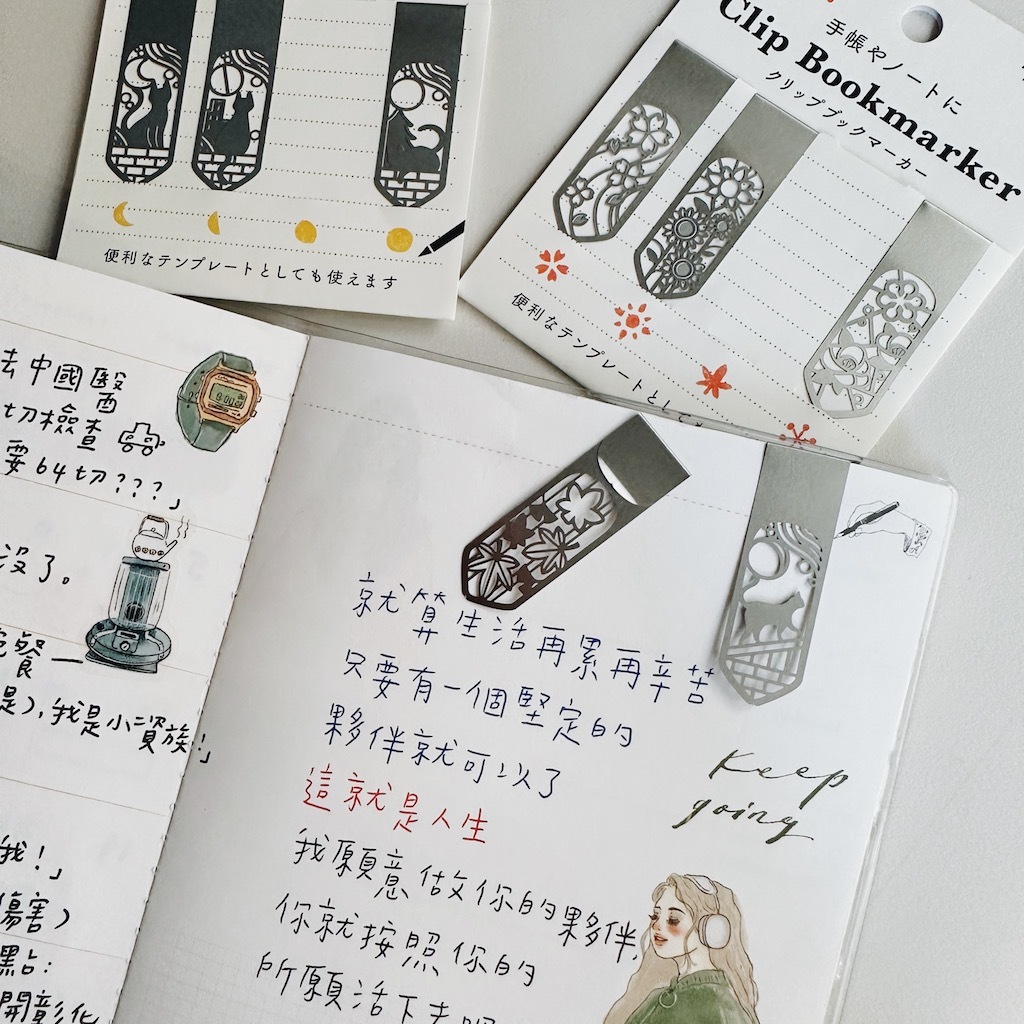 便利なテンプレートとしても使えます
手帳やノートに
Clip Bookmarker
クリップブックマーカー
便利なテンプレートとし
去中國醫
切檢查
要64切???」
8:00
沒了。
餐一
是),我是小資族!」
我!」
傷害)
點:
開彰化
就算生活再累再辛苦
只要有一個堅定的
夥伴就可以了
這就是人生
我願意做你的夥伴,
你就按照你的
所願活下去吧
Keep
going